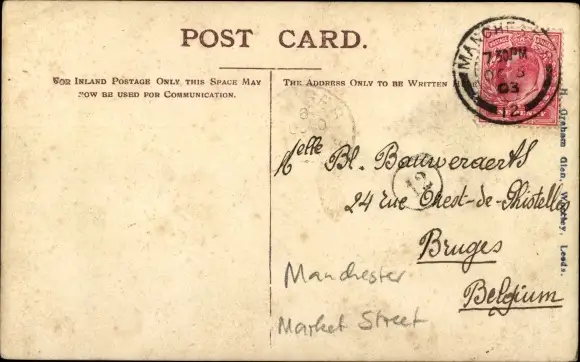 POST CARD.
FOR INLAND POSTAGE ONLY THIS SPACE MAY
NOW BE USED FOR COMMUNICATION.
THE ADDRESS ONLY TO BE WRITTEN HERE
MANCHE
7.30PM
OC 5
03
12
H. Graham Glen, Wortley, Leeds.
Melle Bl. Bauweraerts
12
24 rue Ouest-de-Ghistelles
Bruges
Belgium
Manchester
Market Street